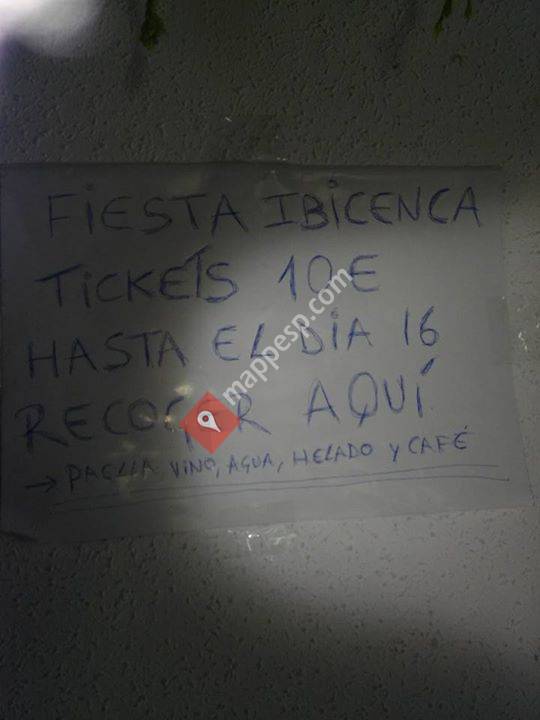 FiESTA IBiCENCA
TiCKETS 10€
HASTA EL DiA 16
RECOGER AQUÍ
→ PAELLA VINO, AGUA, HELADO Y CAFÉ
mappesp.com